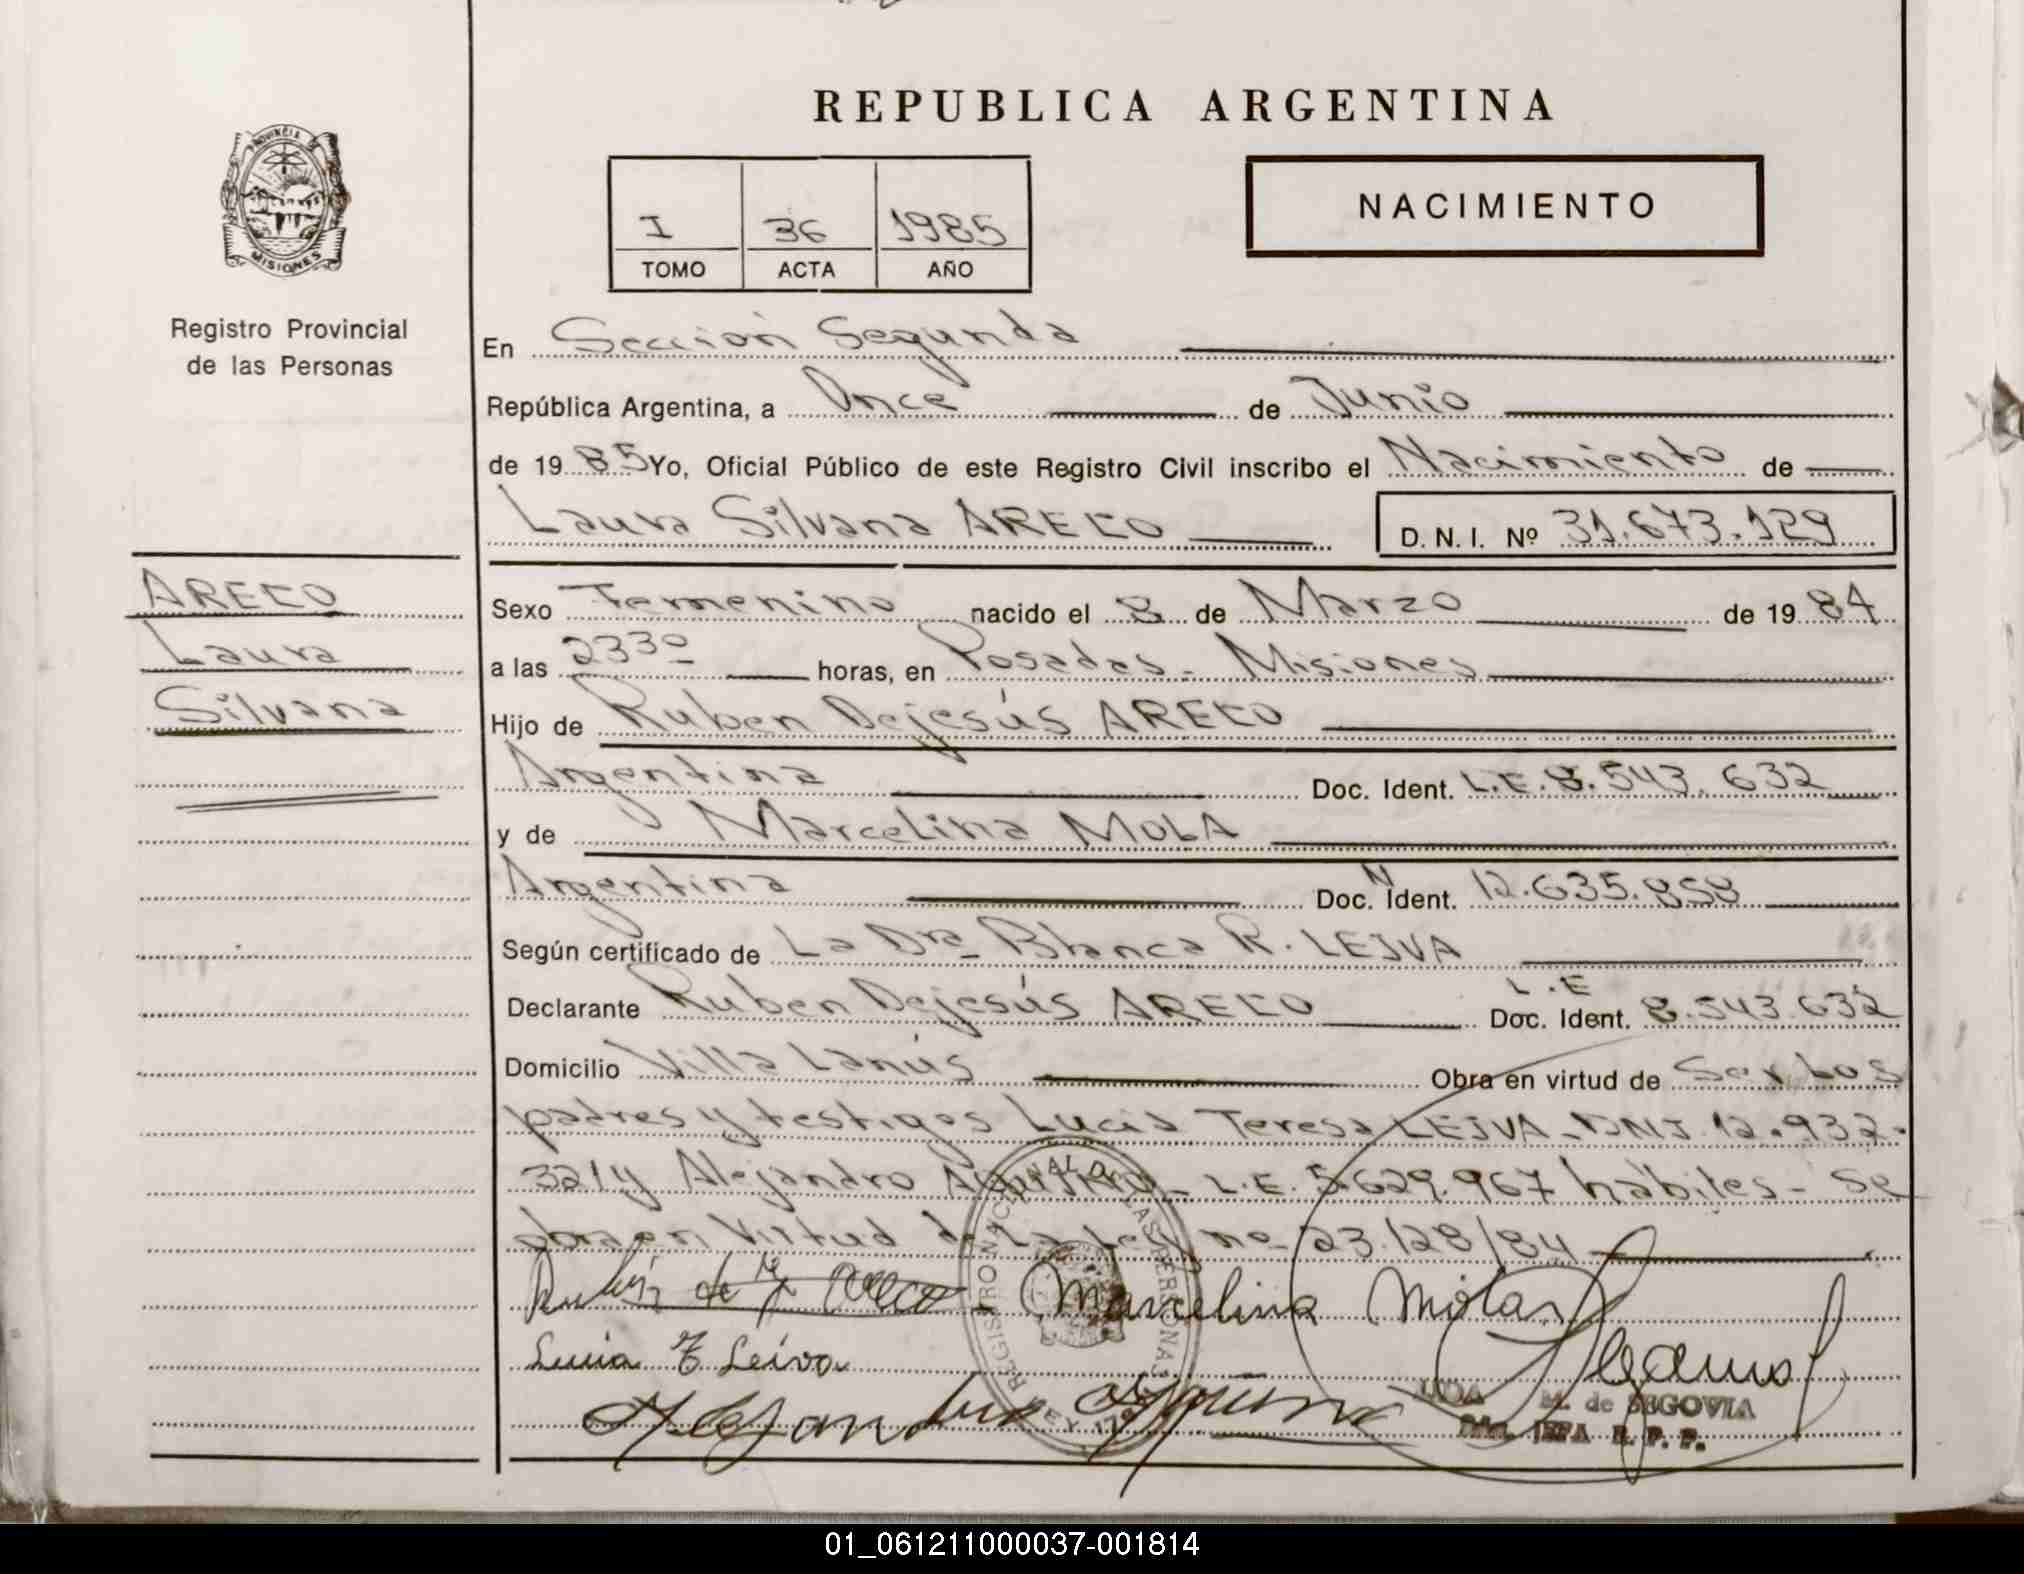 REPUBLICA ARGENTINA
PROVINCIA
MISIONES
Registro Provincial
de las Personas
I 36 1985
TOMO ACTA AÑO
NACIMIENTO
En Seccion Segunda
República Argentina, a Once de Junio
de 1985 Yo, Oficial Público de este Registro Civil inscribo el Nacimiento de
Laura Silvana ARECO D. N. I. Nº 31.673.129
ARECO
Laura
Silvana
Sexo Femenino nacido el 8 de Marzo de 1984
a las 23³⁰ horas, en Posadas - Misiones
Hijo de Ruben Dejesús ARECO
Argentina Doc. Ident. L.E. 8.543.632
y de Marcelina MOLA
Argentina Doc. N Ident. 12.635.858
Según certificado de La Dra Blanca R. LEIVA
Declarante Ruben Dejesús ARECO L.E Doc. Ident. 8.543.632
Domicilio Villa Lanús Obra en virtud de Ser Los
padres y testigos Lucia Teresa LEIVA - DNI 12.932.
321 y Alejandro L.E. 5.629.967 habiles - Se
en Virtud de La Ley nº 23.128/84
Marcelina Molas
Lucia T Leiva
Alejandro
REGISTRO NACIONAL DE LAS PERSONAS
LEY 17
M. de SEGOVIA
R. P. P.
01_061211000037-001814